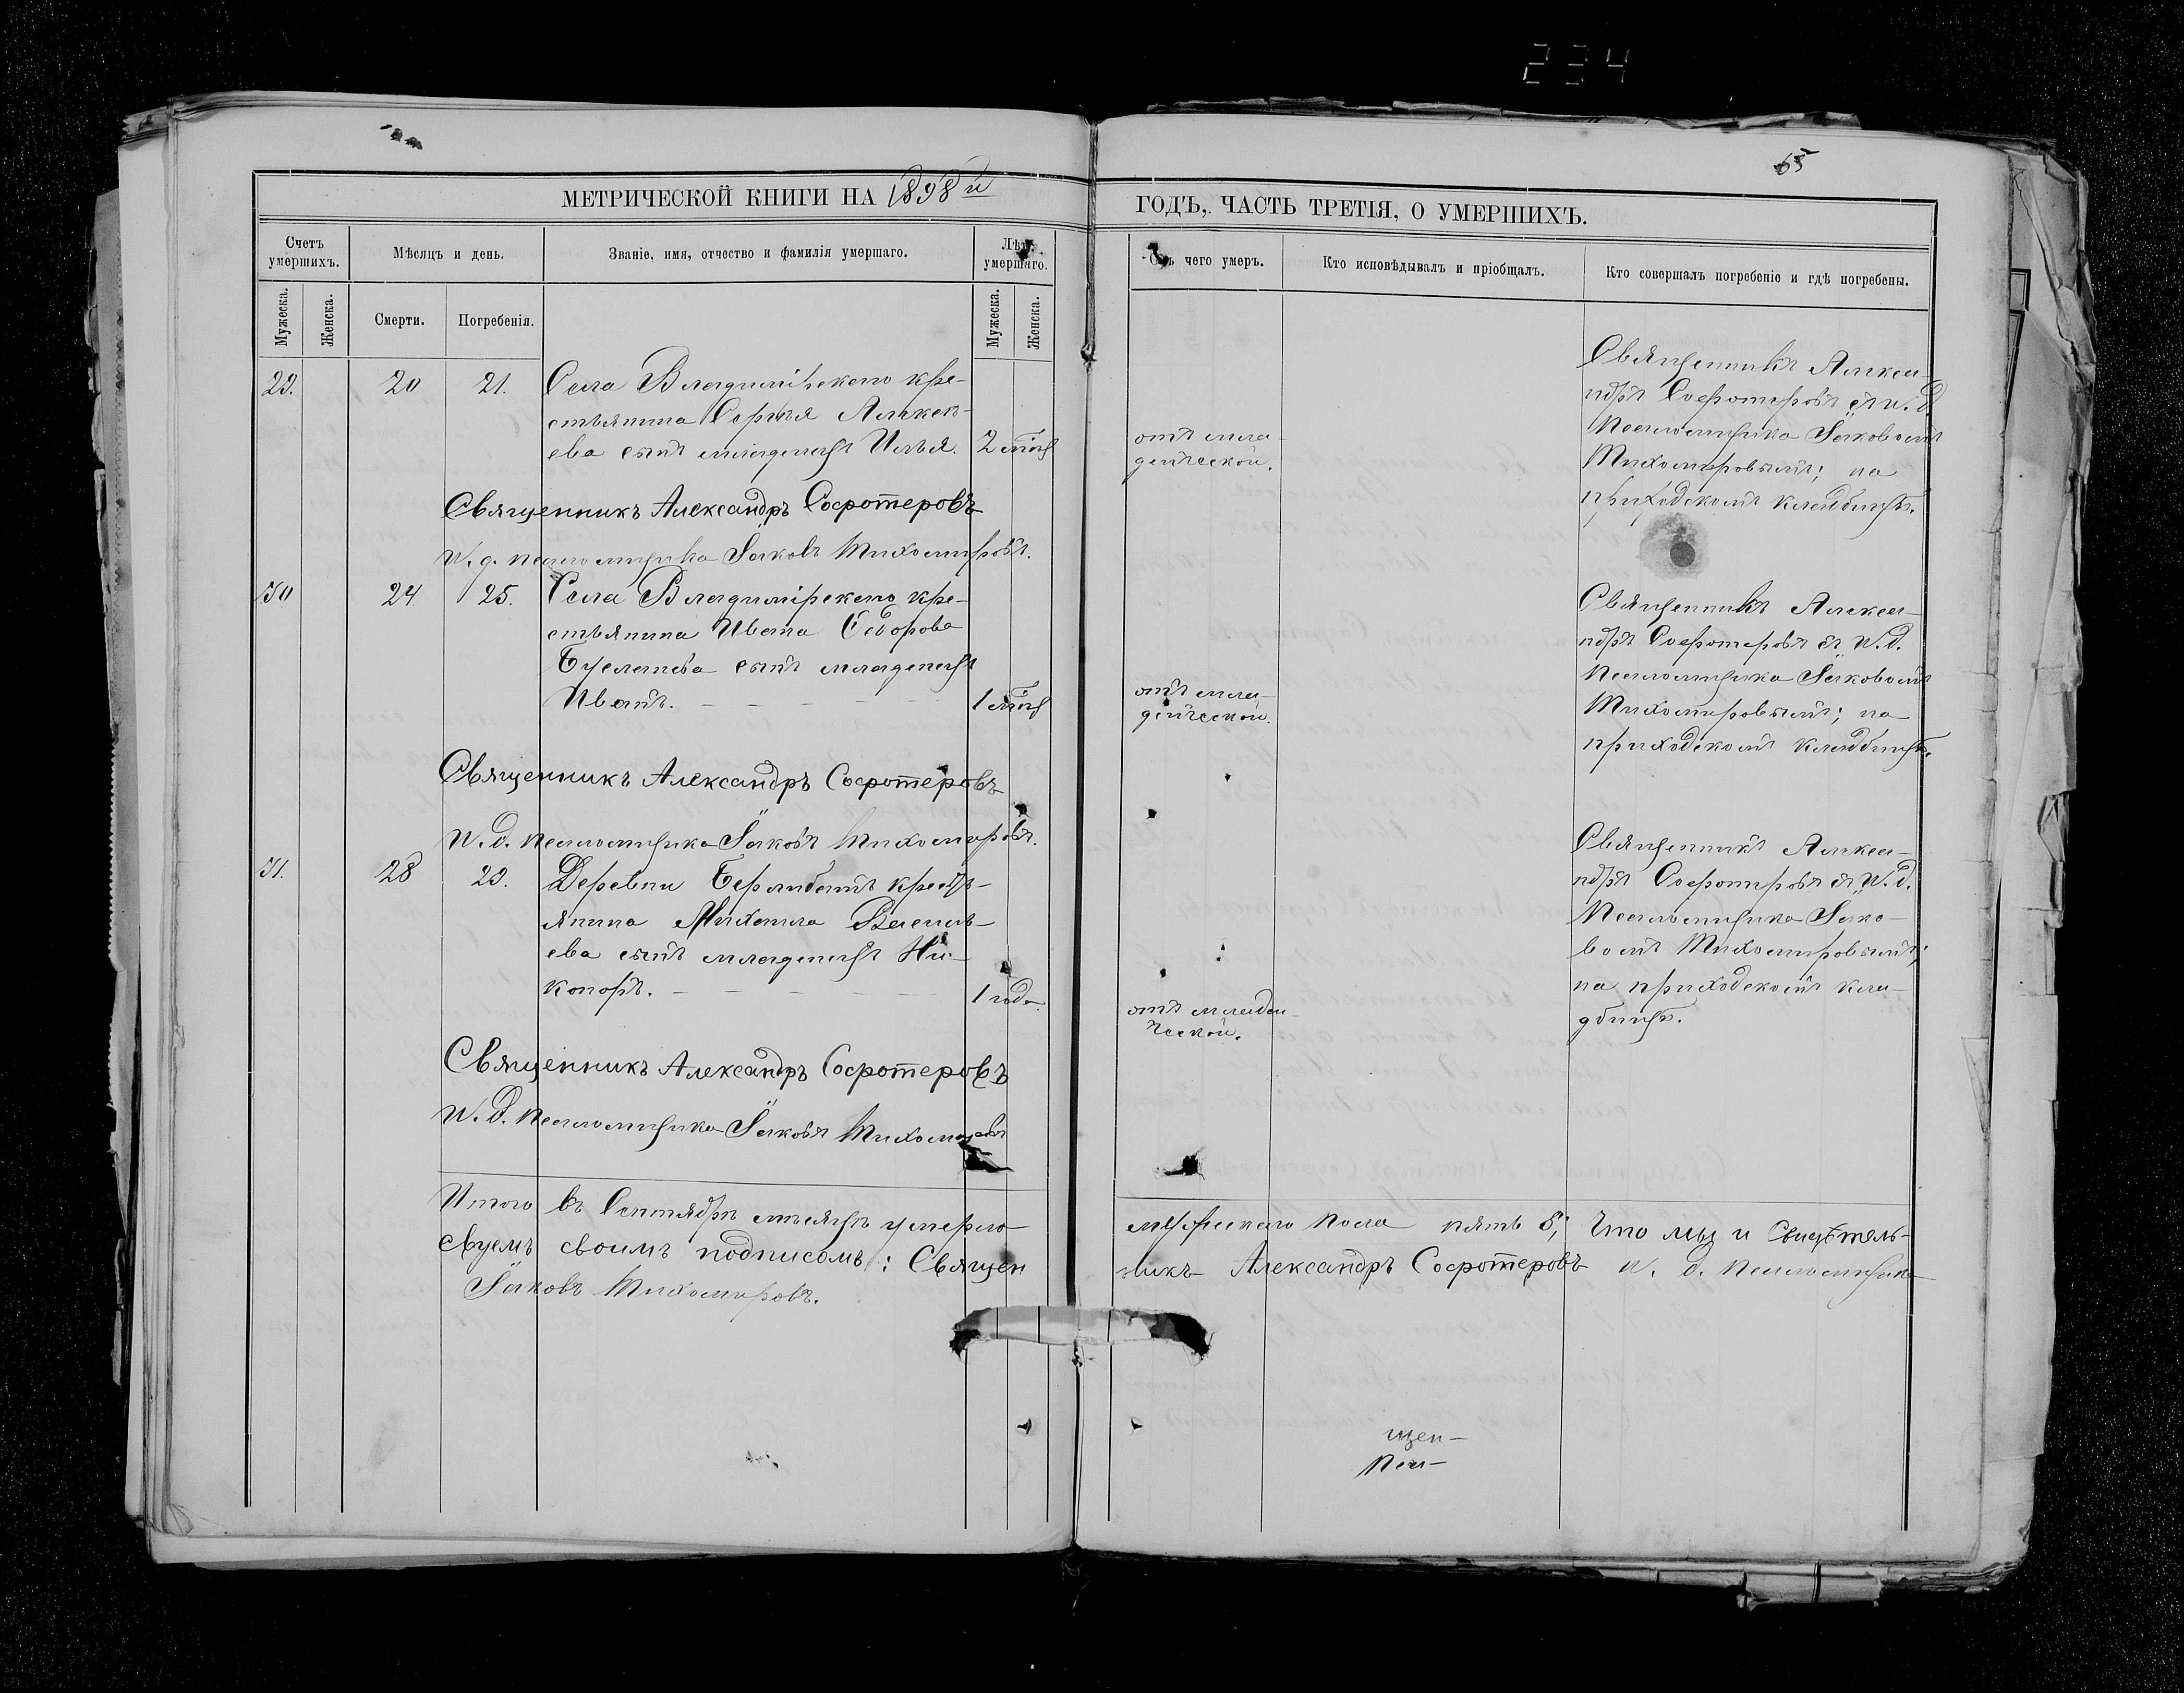 234
65
МЕТРИЧЕСКОЙ КНИГИ НА 1898й
ГОДЪ, ЧАСТЬ ТРЕТІЯ, О УМЕРШИХЪ.
Счетъ умершихъ.
Мѣсяцъ и день.
Званіе, имя, отчество и фамилія умершаго.
Лѣта умершаго.
Мужеска.
Женска.
Смерти.
Погребенія.
Мужеска.
Женска.
чего умеръ.
Кто исповѣдывалъ и пріобщалъ.
Кто совершалъ погребеніе и гдѣ погребены.
29. 20 21. Села Владимірскаго кре-
стьянина Сергѣя Алексѣ-
ева сынъ младенецъ Илья. 2 мѣс
отъ мла-
денческой.
Священникъ Алекса-
ндръ Софотеровъ съ и. д.
Псаломщика Яковомъ
Тихомировымъ; на
приходскомъ кладбищѣ.
Священникъ Александръ Софотеровъ
И. д. псаломщика Яковъ Тихомировъ.
30 24 25. Села Владимірскаго кре-
стьянина Ивана Ѳедорова
сынъ младенецъ
Иванъ. 1 мѣс
отъ мла-
денческой.
Священникъ Алекса-
ндръ Софотеровъ съ И. д.
Псаломщика Яковомъ
Тихомировымъ; на
приходскомъ кладбищѣ.
Священникъ Александръ Софотеровъ
И. д. псаломщика Яковъ Тихомировъ.
31. 28 29. Деревни кресть-
янина Михаила Василь-
ева сынъ младенецъ Ни-
каноръ. 1 года
отъ младен-
ческой.
Священникъ Алекса-
ндръ Софотеровъ съ И. д.
Псаломщика Яко-
вомъ Тихомировымъ;
на приходскомъ кла-
дбищѣ.
Священникъ Александръ Софотеровъ
И. д. псаломщика Яковъ Тихомировъ
Итого въ Сентябрѣ мѣсяцѣ умерло мужескаго пола пять 5; Что мы и свидѣтель-
свуемъ своимъ подписомъ: Священникъ Александръ Софотеровъ И. д. псаломщика
Яковъ Тихомировъ.
щен-
Пса-